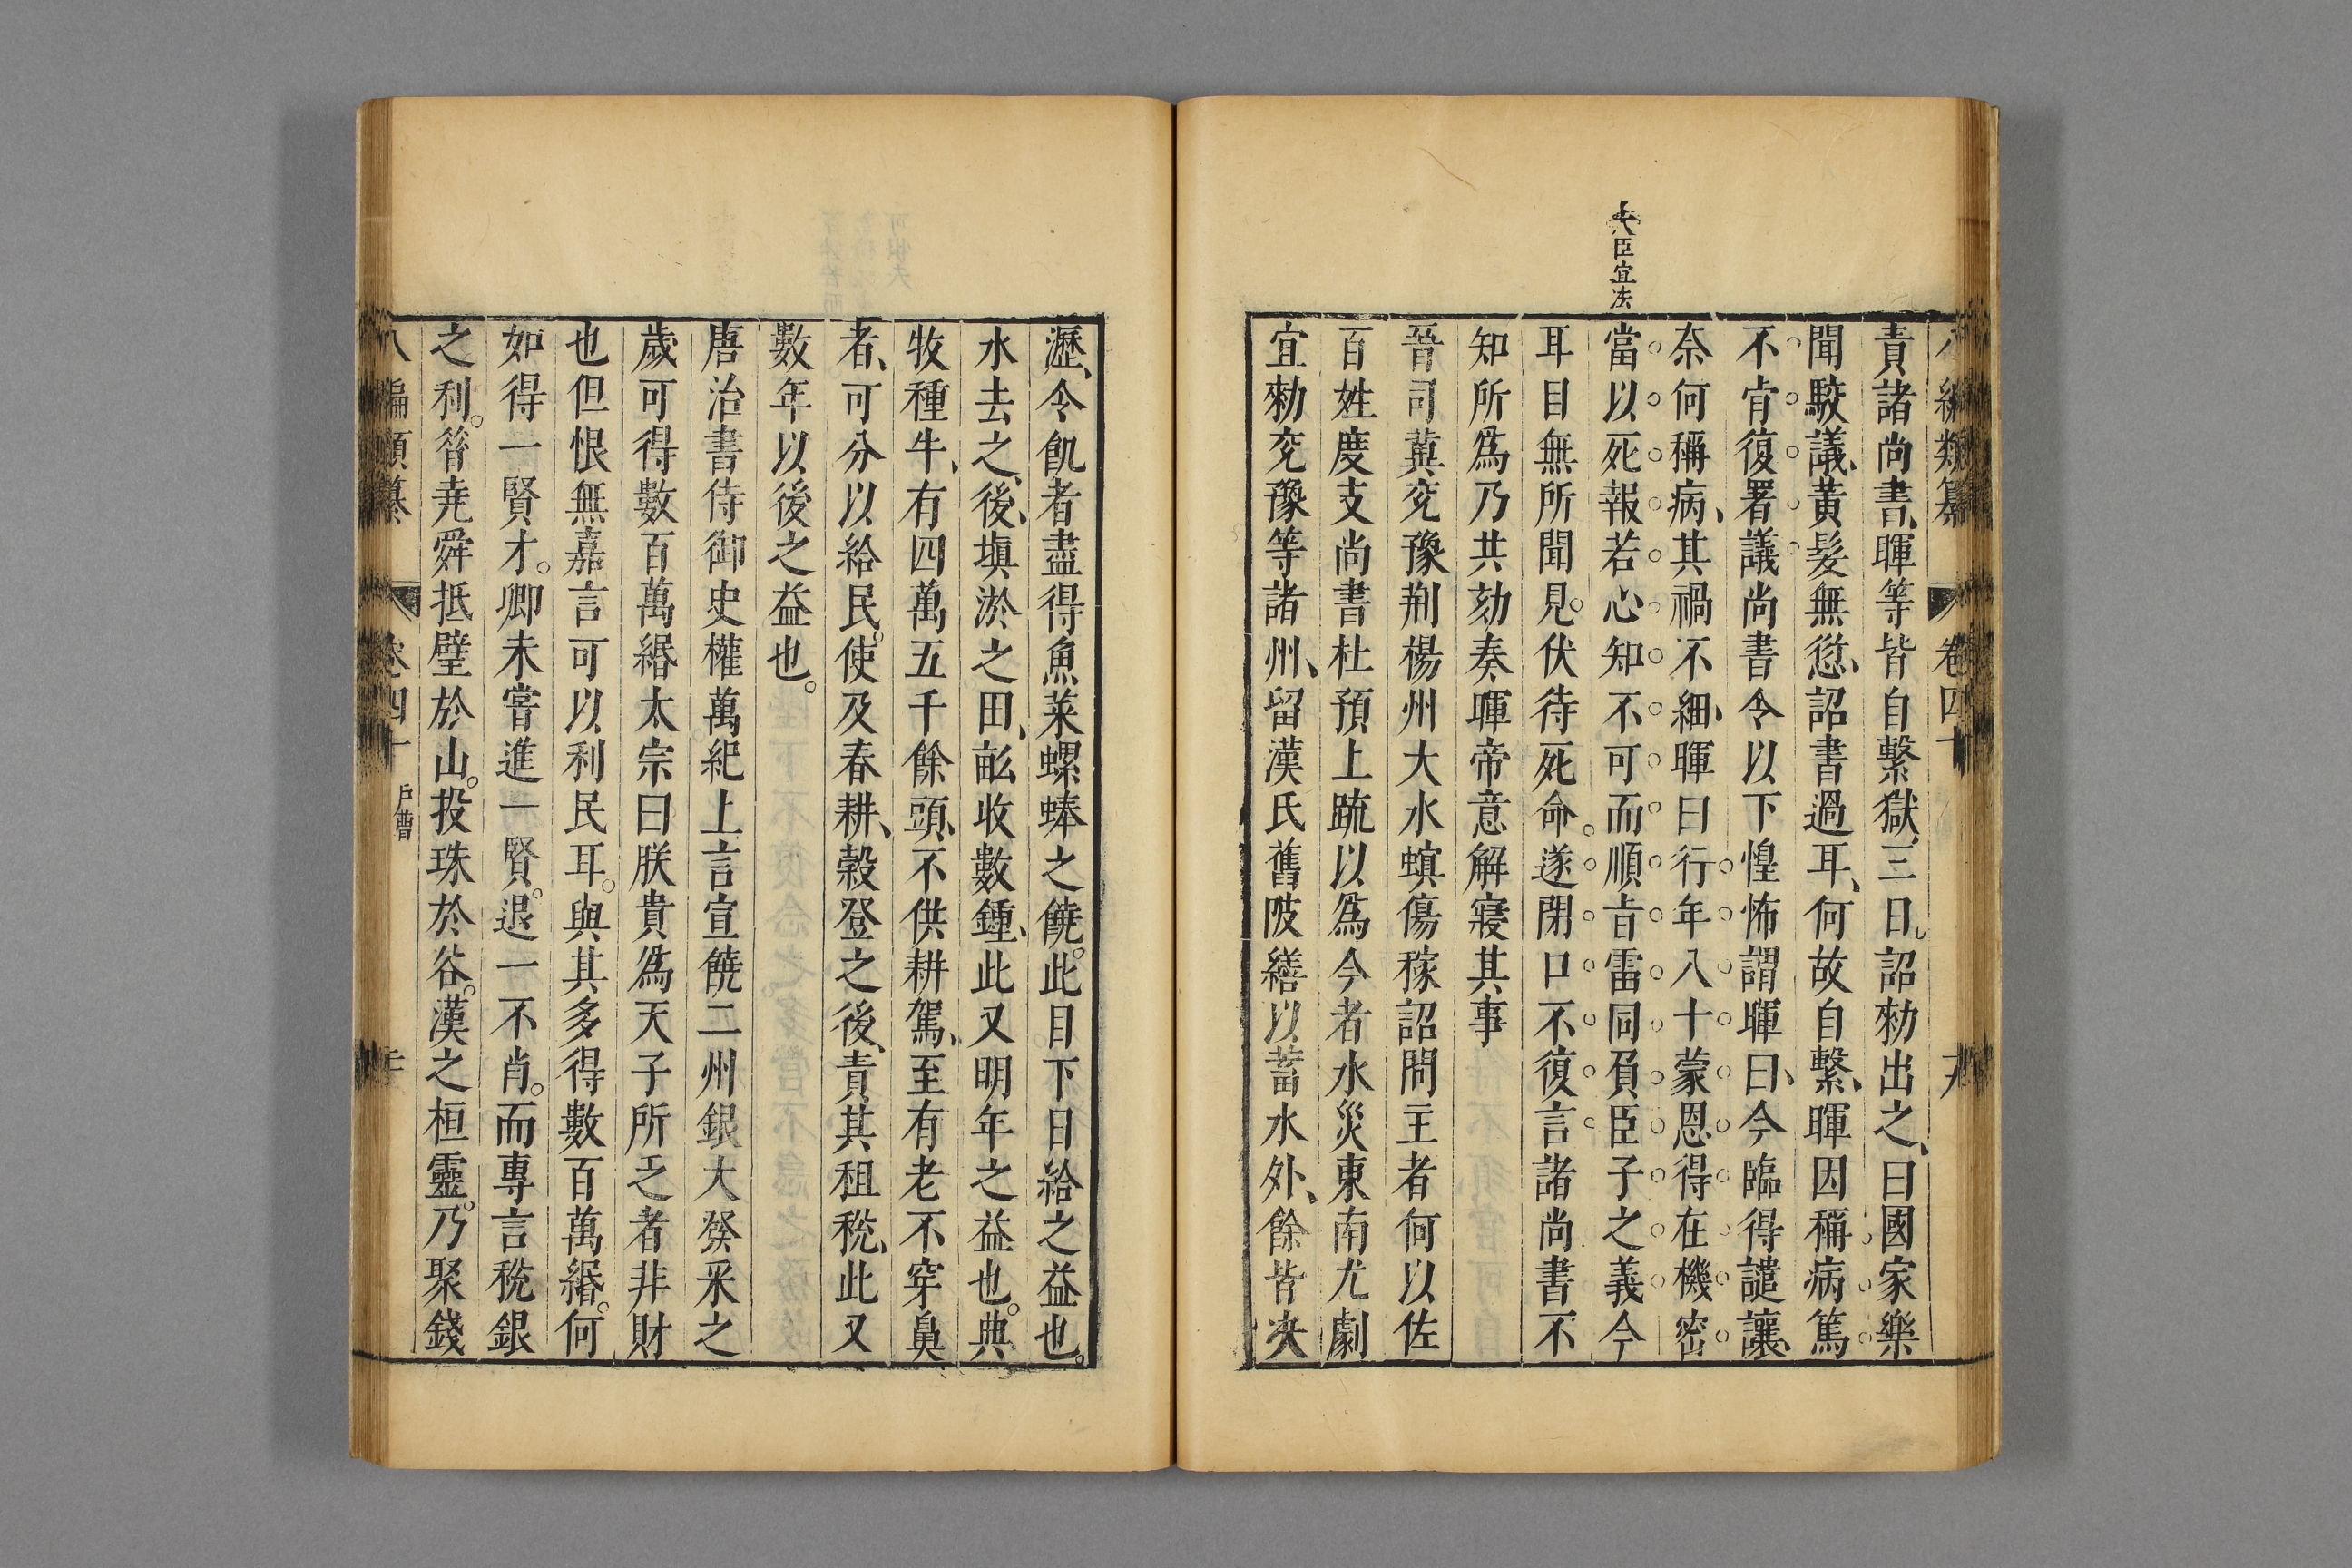 八編類纂 卷四十 十九
大臣宜法
責諸尚書、暉等皆自繫獄、三日。詔勑出之、曰國家樂
聞駮議、黃髮無愆、詔書過耳、何故自繫、暉因稱病篤
不肯復署議尚書令以下惶怖謂暉曰、今臨得譴讓、
奈何稱病、其禍不細、暉曰行年八十蒙恩得在機密
當以死報若心知不可而順旨雷同負臣子之義今
耳目無所聞見。伏待死命。遂閉口不復言諸尚書不
知所爲乃共劾奏暉帝意解寢其事
晉司冀兗豫荆楊州大水螟傷稼詔問主者何以佐
百姓度支尚書杜預上疏以爲今者水災東南尤劇
宜勑兗豫等諸州、留漢氏舊陂繕以蓄水外、餘皆决
瀝、令飢者盡得魚菜螺蜯之饒。此目下日給之益也。
水去之、後、塡淤之田、畝收數鍾、此又明年之益也。典
牧種牛、有四萬五千餘頭、不供耕駕、至有老不穿鼻
者、可分以給民。使及春耕、穀登之後、責其租稅、此又
數年以後之益也。
唐治書侍御史權萬紀上言宣饒二州銀大發采之
歲可得數百萬緡太宗曰朕貴爲天子所乏者非財
也但恨無嘉言可以利民耳。與其多得數百萬緡。何
如得一賢才。卿未嘗進一賢。退一不肖。而專言稅銀
之利。昝尭舜抵璧於山。投珠於谷。漢之桓靈。乃聚錢
八編類纂 卷四十 戶曹 二十